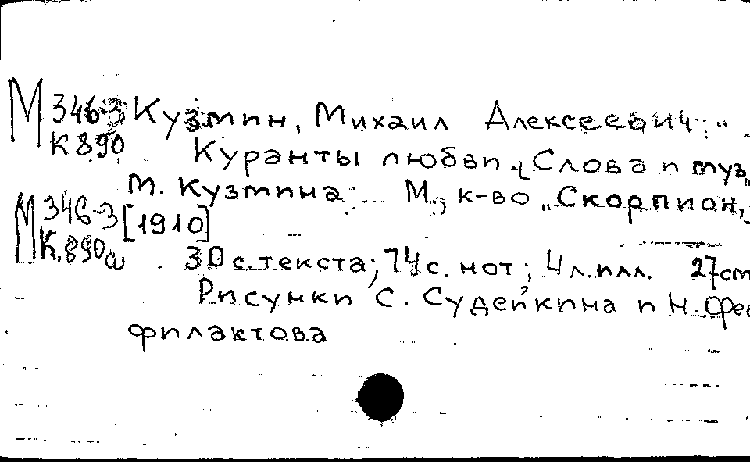 М 346-3 Кузмин, Михаил Алексеевич.
К 890 Куранты любви. Слова и муз.
М. Кузмина. М., к-во "Скорпион",
М 346-3 [1910]
К.890а 30 с. текста; 74 с. нот; 4 л. илл. 27 cm
Рисунки С. Судейкина и Н. Фео
филактова